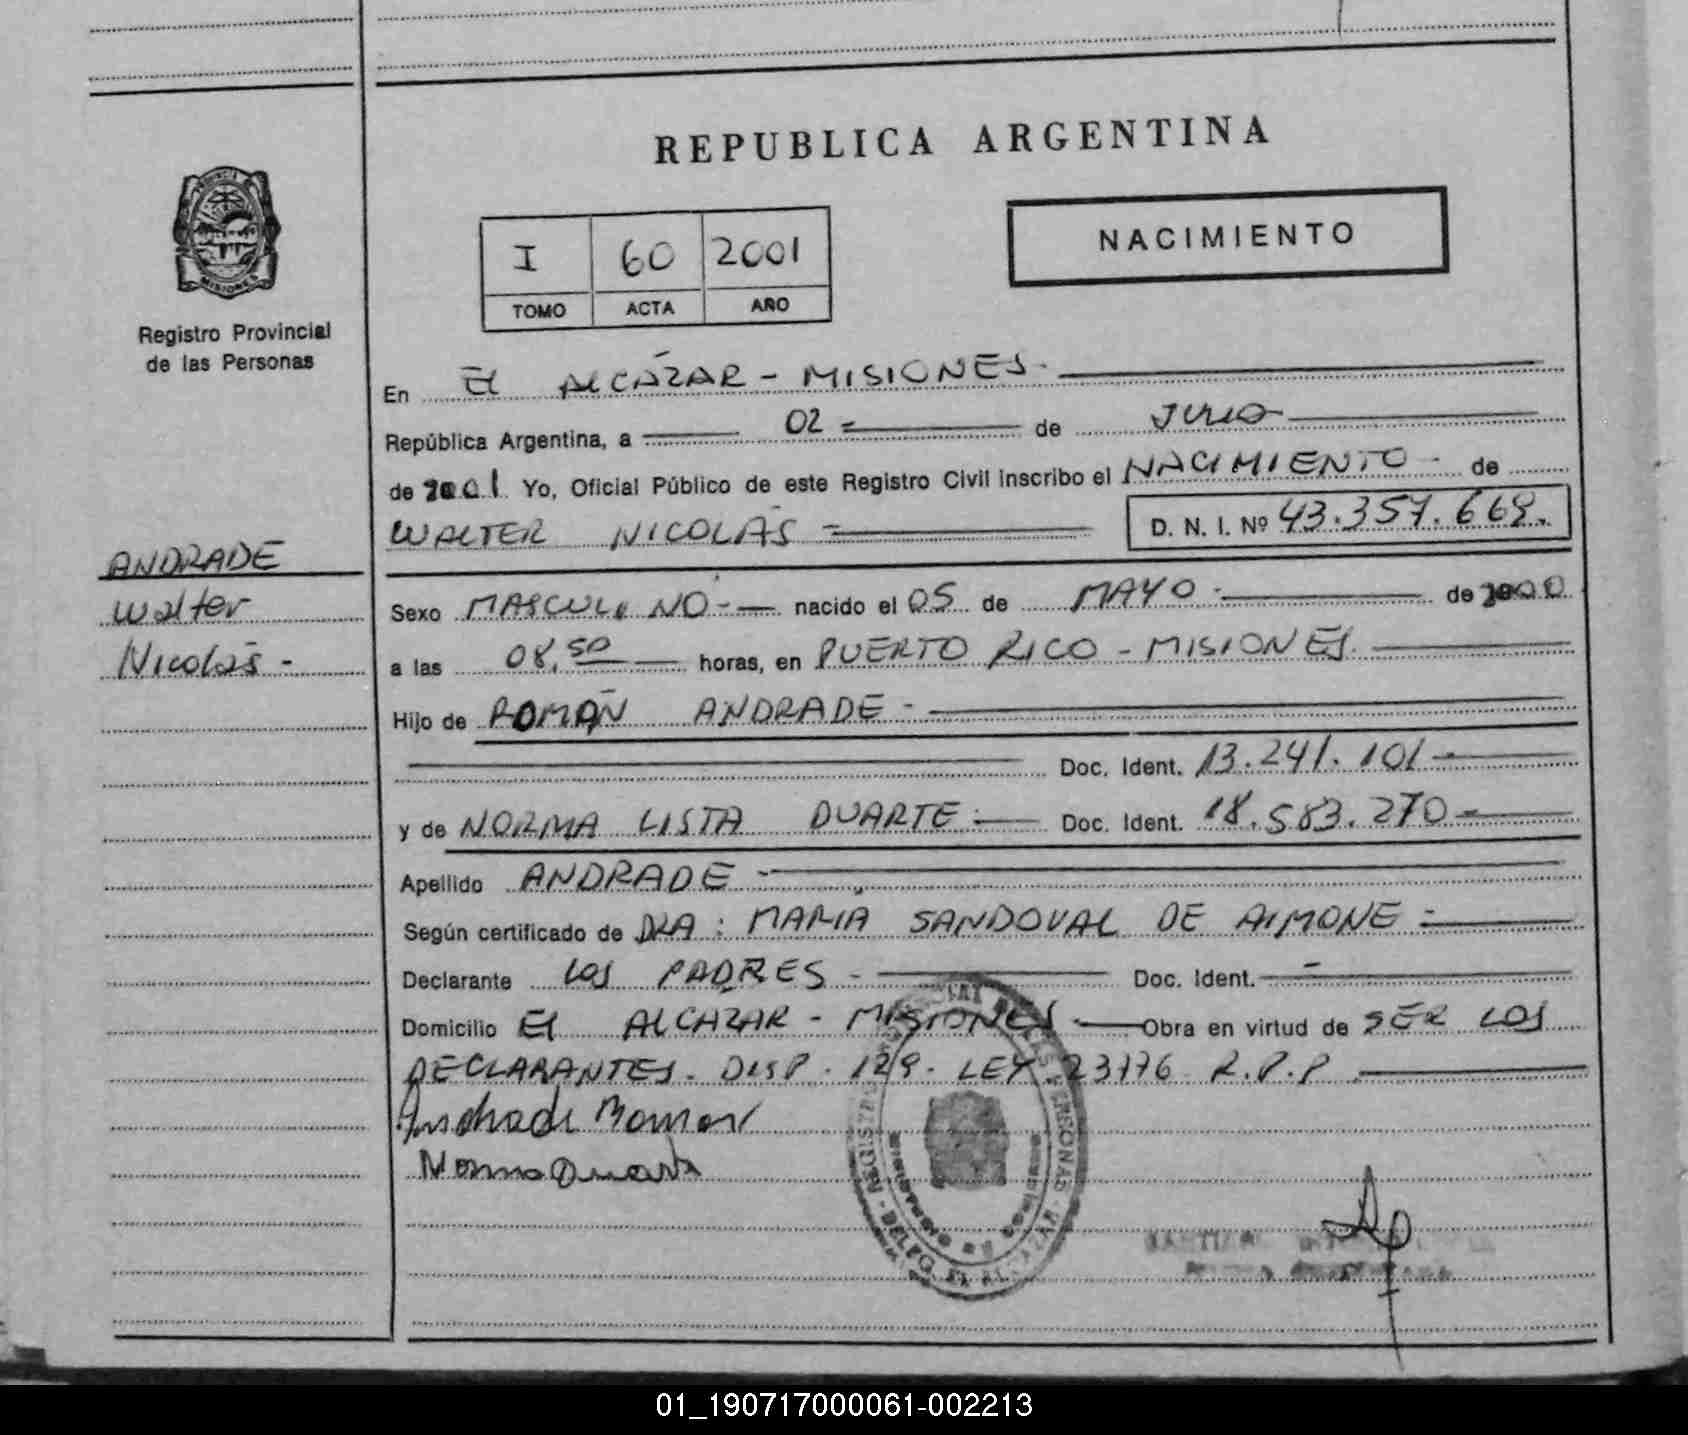 REPUBLICA ARGENTINA
PROVINCIA
MISIONES
Registro Provincial
de las Personas
I 60 2001
TOMO ACTA AÑO
NACIMIENTO
En El ALCÁZAR - MISIONES -
República Argentina, a 02 = de JULIO
de 2001 Yo, Oficial Público de este Registro Civil inscribo el NACIMIENTO - de
WALTER NICOLÁS = D. N. I. Nº 43.357.669.
ANDRADE
Walter
Nicolás -
Sexo MASCULINO - nacido el 05 de MAYO - de 2000
a las 08,50 horas, en PUERTO RICO - MISIONES.
Hijo de ROMÁN ANDRADE -
Doc. Ident. 13.241.101 -
y de NORMA LISTA DUARTE - Doc. Ident. 18.583.270 -
Apellido ANDRADE -
Según certificado de DRA : MARIA SANDOVAL DE AIMONE =
Declarante LOS PADRES - Doc. Ident. -
Domicilio El ALCAZAR - MISIONES - Obra en virtud de SER LOS
DECLARANTES. DISP. 129. LEY 23776 R.P.P
Andrade Roman
Norma Duarte
01_190717000061-002213